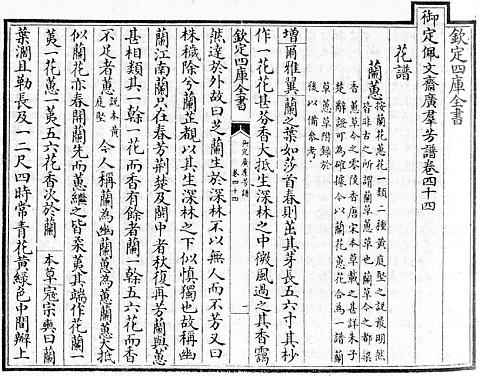 欽定四庫全書
御定佩文齋廣羣芳譜卷四十四
花譜
蘭蕙
按蘭花蕙花一類二種黃庭堅之說最明然
皆非古之所謂蘭草蕙草也蘭草今之都梁
香蕙草今之零陵香唐宋本草載之甚詳朱子
楚辭證可為確據今以蘭花蕙花合為一譜蘭
草蕙草附錄於
後以備參考
增爾雅翼蘭之葉如莎首春則茁其芽長五六寸其杪
作一花花甚芬香大抵生深林之中微風過之其香靄
然達於外故曰芝蘭生於深林不以無人而不芳又曰
欽定四庫全書
御定廣羣芳譜
卷四十四
一
株穢除兮蘭芷覩以其生深林之下似慎獨也故稱幽
蘭江南蘭只在春芳荊楚及閩中者秋復再芳蘭與蕙
甚相類其一榦一花而香有餘者蘭一榦五六花而香
不足者蕙說本黃庭堅今人稱蘭為幽蘭蕙為蕙蘭蕙大抵
似蘭花亦春開蘭先而蕙繼之皆柔荑其端作花蘭一
荑一花蕙一荑五六花香次於蘭 本草寇宗奭曰蘭
葉濶且靭長及一二尺四時常青花黃綠色中間瓣上